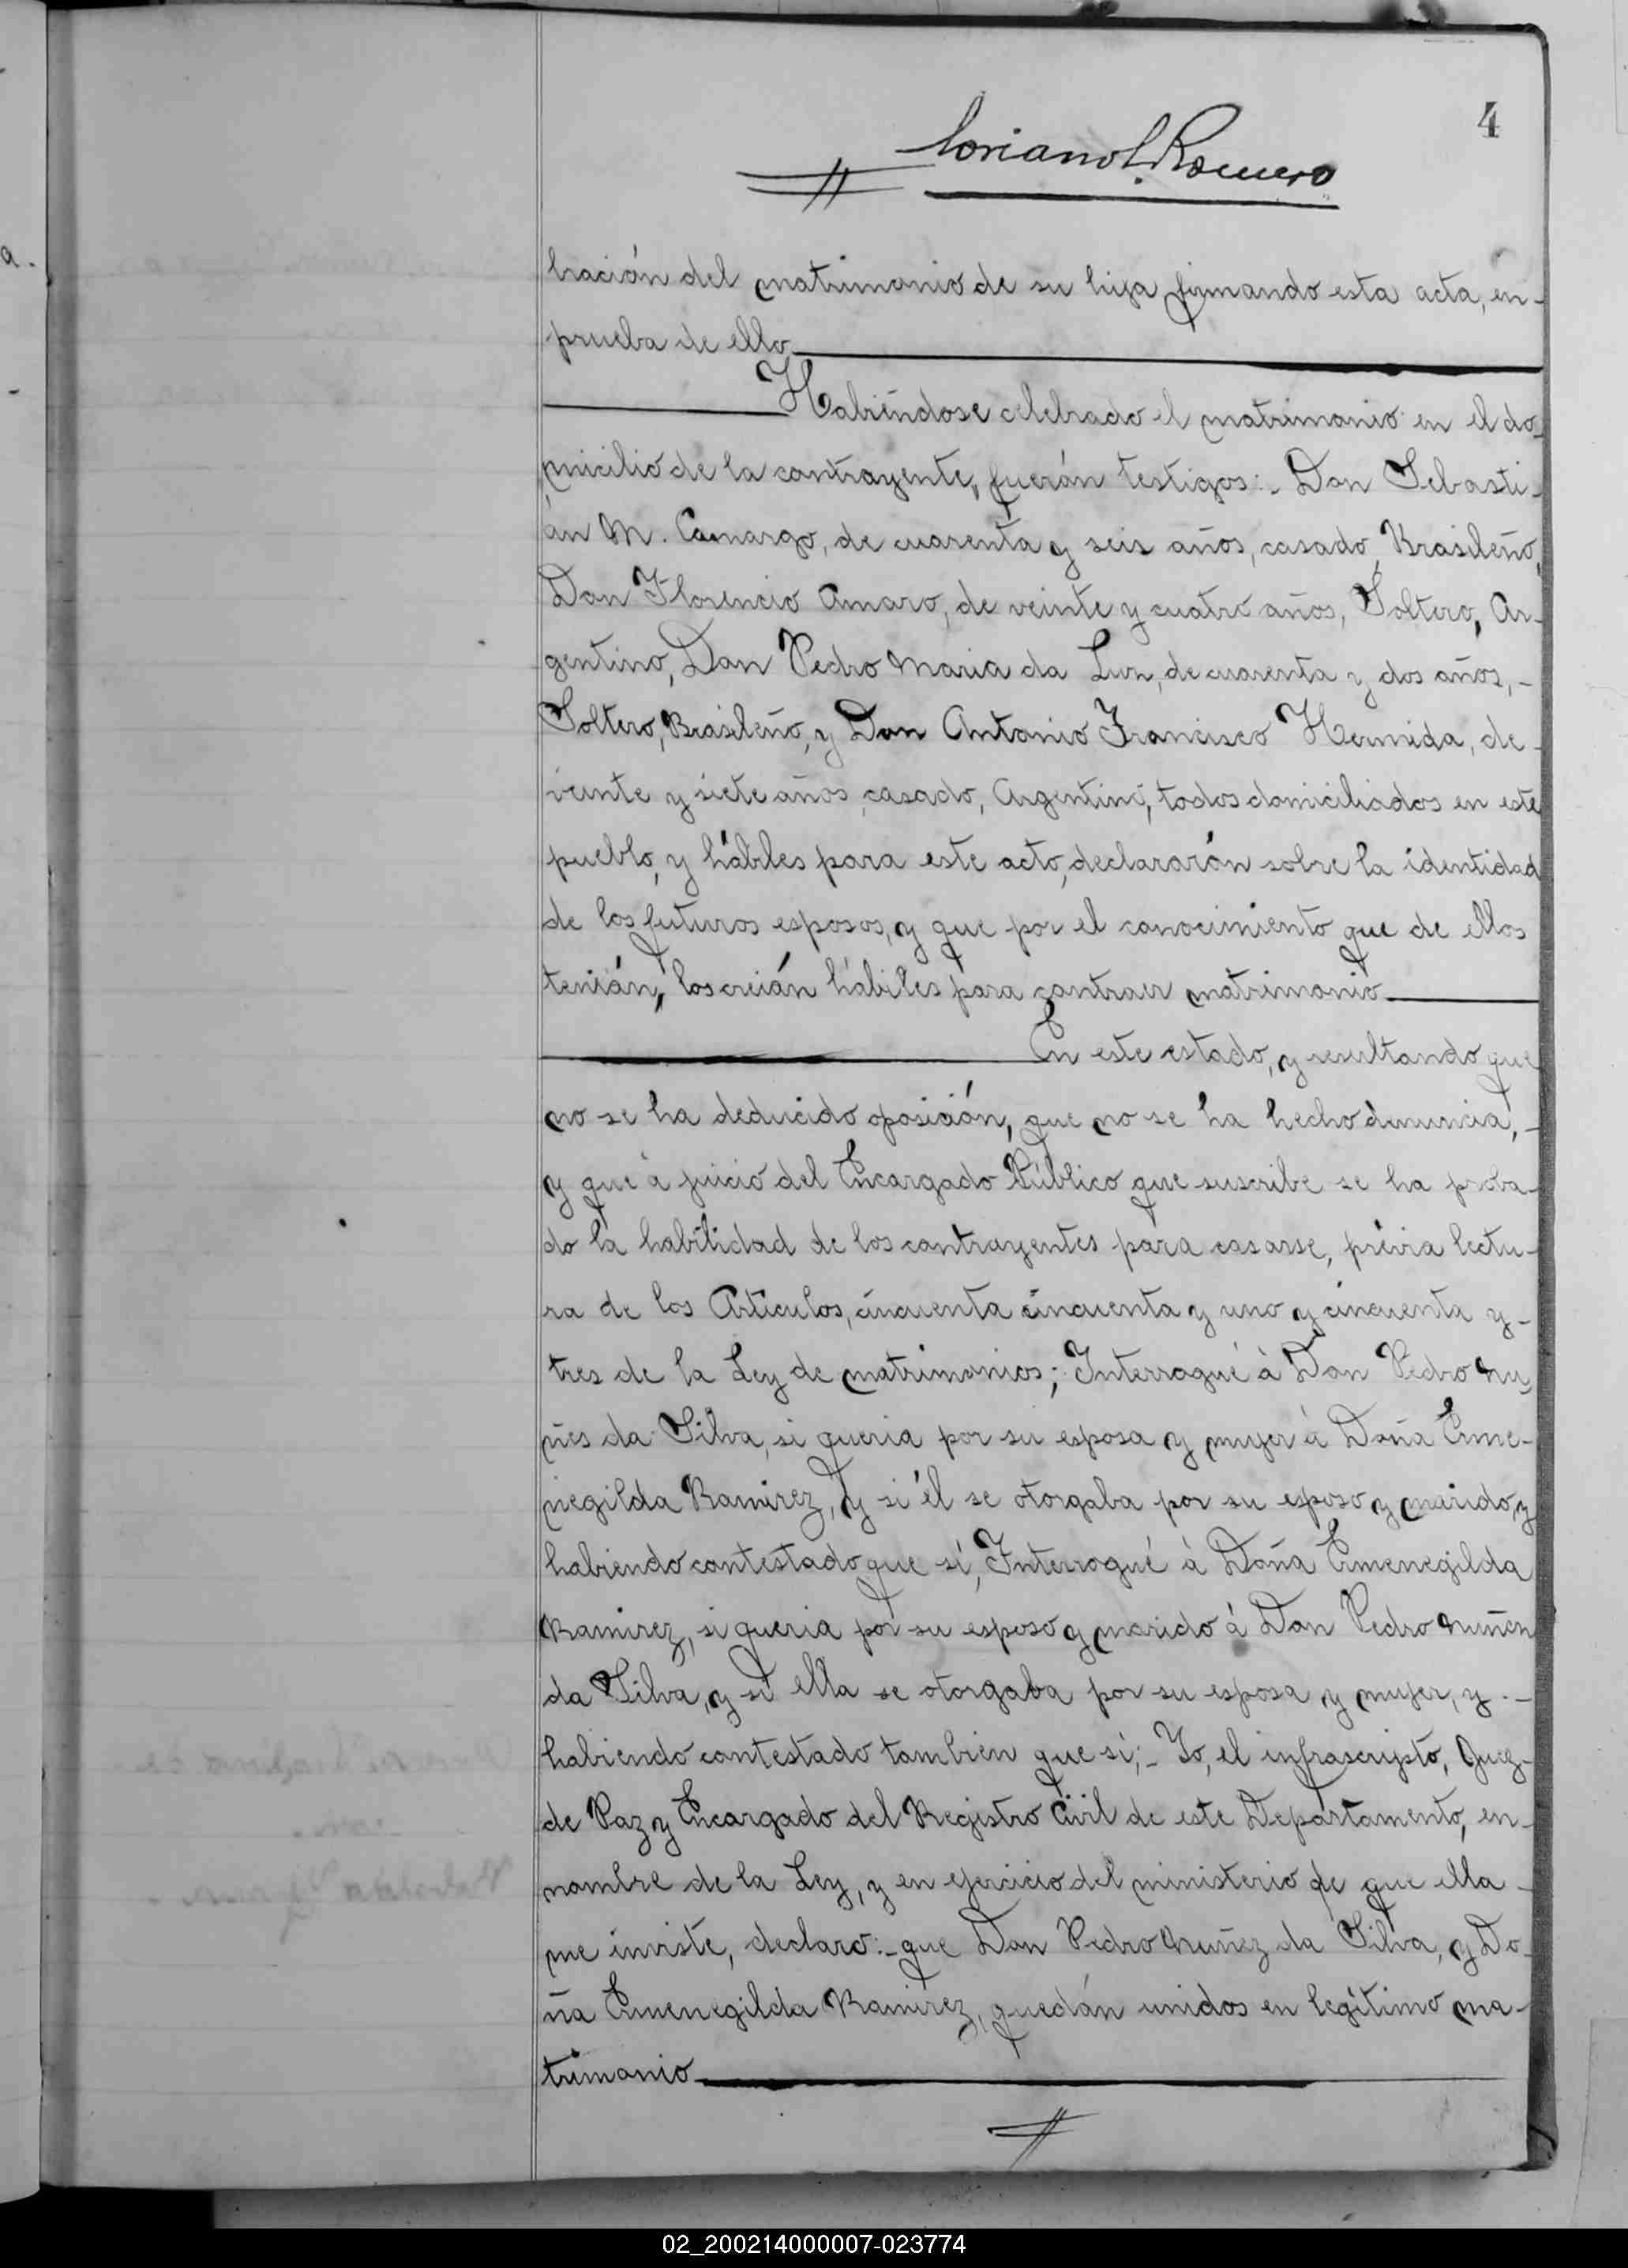 4
Coriano L. Romero
bración del matrimonio de su hija firmando esta acta, en-
prueba de ello
Habiéndose celebrado el matrimonio en el do-
micilio de la contrayente, fuerón testigos:- Don Sebasti-
án M. Camargo, de cuarenta y seis años, casado, Brasileño,
Don Florencio Amaro, de veinte y cuatro años, Soltero, Ar-
gentino, Don Pedro Maria da Luz, de cuarenta y dos años,-
Soltero, Brasileño, y Don Antonio Francisco Hermida, de-
veinte y siete años, casado, Argentino, todos domiciliados en este
pueblo, y hábiles para este acto, declararón sobre la identidad
de los futuros esposos, y que por el conocimiento que de ellos
tenián, los creián hábiles para contraer matrimonio
En este estado, y resultando que
no se ha deducido oposición, que no se ha hecho denuncia,-
y que á juicio del Encargado Público que suscribe se ha proba-
do la habilidad de los contrayentes para casarse, prévia lectu-
ra de los Artículos, cincuenta cincuenta y uno y cincuenta y-
tres de la Ley de matrimonios; Interrogué à Don Pedro Nu-
ñes da Silva, si queria por su esposa y mujer á Doña Erme-
negilda Ramirez, y si él se otorgaba por su esposo y marido, y
habiendo contestado que sí, Interrogué à Doña Ermenegilda
Ramirez, si queria por su esposo y marido á Don Pedro Nuñez
da Silva, y si ella se otorgaba por su esposa y mujer, y.-
habiendo contestado tambien que sí;- Yo, el infrascripto, Juez-
de Paz y Encargado del Registro Civil de este Departamento, en-
nombre de la Ley, y en ejercicio del ministerio de que ella-
me inviste, declaro:- que Don Pedro Nuñez da Silva, y Do-
ña Ermenegilda Ramirez, quedán unidos en legítimo ma-
trimonio
02_200214000007-023774